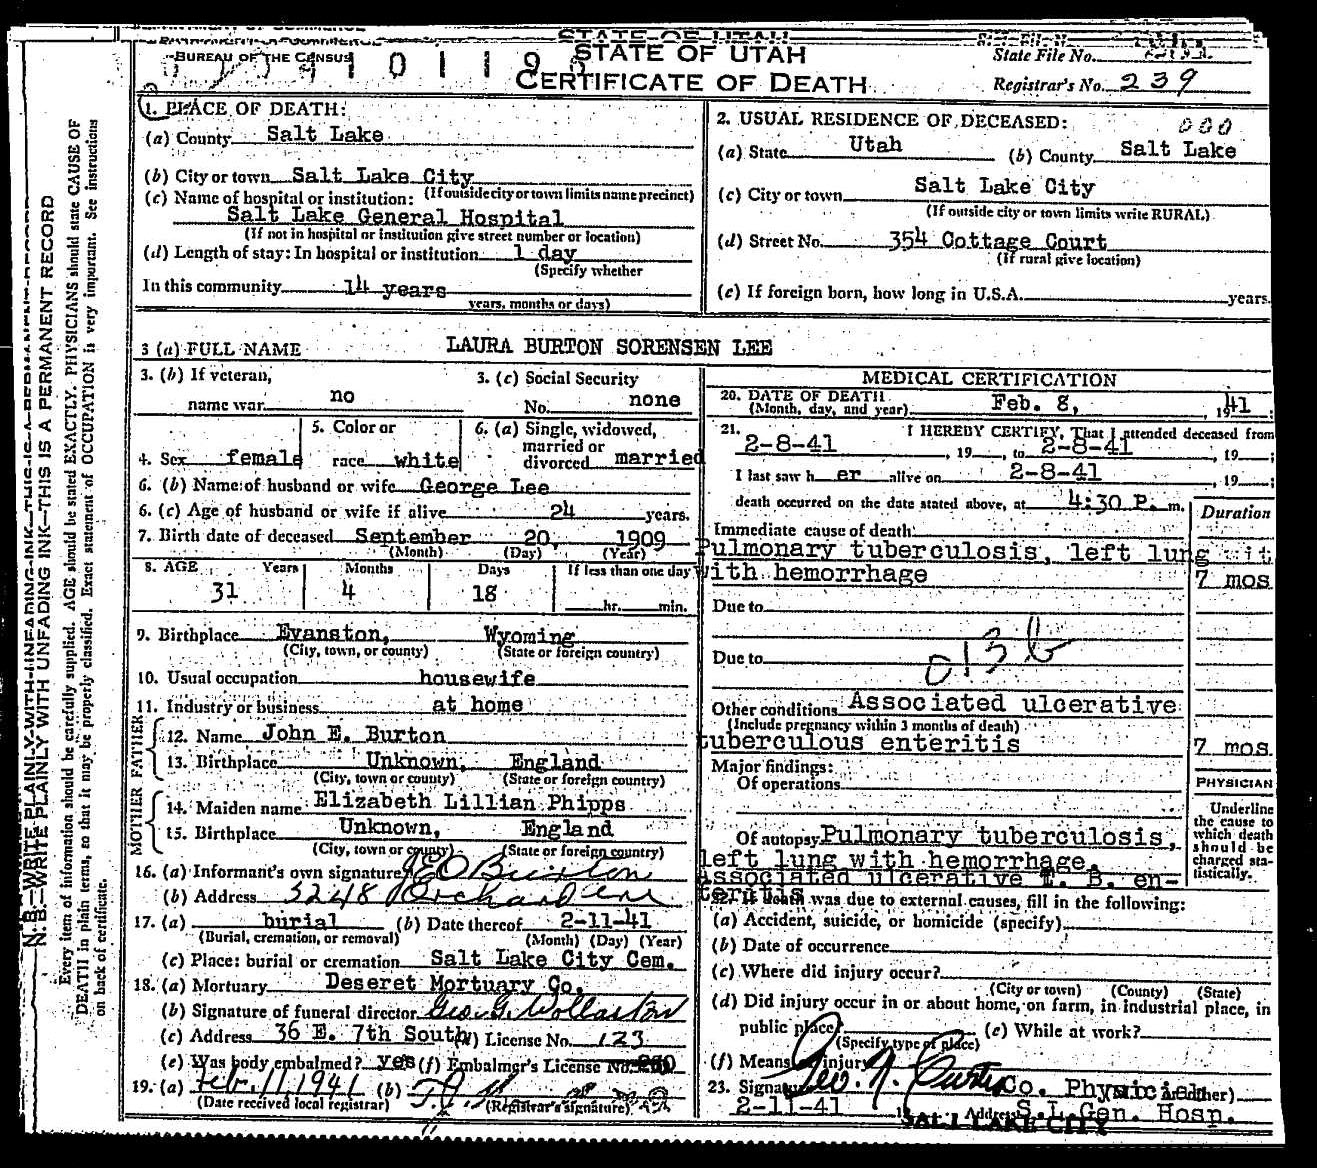 STATE OF UTAH
BUREAU OF THE CENSUS
CERTIFICATE OF DEATH
State File No.
Registrar's No. 239
1. PLACE OF DEATH:
(a) County Salt Lake
(b) City or town Salt Lake City
(If outside city or town limits name precinct)
(c) Name of hospital or institution:
Salt Lake General Hospital
(If not in hospital or institution give street number or location)
(d) Length of stay: In hospital or institution 1 day
(Specify whether
In this community 14 years
years, months or days)
2. USUAL RESIDENCE OF DECEASED:
000
(a) State Utah (b) County Salt Lake
(c) City or town Salt Lake City
(If outside city or town limits write RURAL)
(d) Street No. 354 Cottage Court
(If rural give location)
(e) If foreign born, how long in U.S.A. years.
3 (a) FULL NAME LAURA BURTON SORENSEN LEE
3. (b) If veteran,
name war no
3. (c) Social Security
No. none
4. Sex female
5. Color or
race white
6. (a) Single, widowed,
married or
divorced married
6. (b) Name of husband or wife George Lee
6. (c) Age of husband or wife if alive 24 years.
7. Birth date of deceased September 20, 1909
(Month) (Day) (Year)
8. AGE Years Months Days If less than one day
31 4 18 hr. min.
9. Birthplace Evanston, Wyoming
(City, town, or county) (State or foreign country)
10. Usual occupation housewife
11. Industry or business at home
FATHER
12. Name John E. Burton
13. Birthplace Unknown, England
(City, town or county) (State or foreign country)
MOTHER
14. Maiden name Elizabeth Lillian Phipps
15. Birthplace Unknown, England
(City, town or county) (State or foreign country)
16. (a) Informant's own signature J E Burton
(b) Address 3248 Orchard
17. (a) burial (b) Date thereof 2-11-41
(Burial, cremation, or removal) (Month) (Day) (Year)
(c) Place: burial or cremation Salt Lake City Cem.
18. (a) Mortuary Deseret Mortuary Co.
(b) Signature of funeral director Geo. G. Wollaston
(c) Address 36 E. 7th South (d) License No. 123
(e) Was body embalmed? yes (f) Embalmer's License No.
19. (a) Feb. 11 1941 (b)
(Date received local registrar) (Registrar's signature)
MEDICAL CERTIFICATION
20. DATE OF DEATH
(Month, day, and year) Feb. 8, , 1941
21. I HEREBY CERTIFY, That I attended deceased from
2-8-41 , 19 , to 2-8-41 , 19 ;
I last saw h er alive on 2-8-41 , 19 ;
death occurred on the date stated above, at 4:30 P. m.
Duration
Immediate cause of death:
Pulmonary tuberculosis, left lung
with hemorrhage 7 mos
Due to
Due to
013b
Other conditions Associated ulcerative
(Include pregnancy within 3 months of death)
tuberculous enteritis 7 mos.
Major findings:
Of operations
PHYSICIAN
Underline
the cause to
which death
should be
charged sta-
tistically.
Of autopsy Pulmonary tuberculosis,
left lung with hemorrhage.
Associated ulcerative T. B. en-
teritis
22. If death was due to external causes, fill in the following:
(a) Accident, suicide, or homicide (specify)
(b) Date of occurrence
(c) Where did injury occur?
(City or town) (County) (State)
(d) Did injury occur in or about home, on farm, in industrial place, in
public place? (e) While at work?
(Specify type of place)
(f) Means of injury
23. Signature Geo. N. Curtis Co. Physician
2-11-41 Address S.L. Gen. Hosp.
SALT LAKE CITY
N. B.—WRITE PLAINLY WITH UNFADING INK—THIS IS A PERMANENT RECORD
Every item of information should be carefully supplied. AGE should be stated EXACTLY. PHYSICIANS should state CAUSE OF
DEATH in plain terms, so that it may be properly classified. Exact statement of OCCUPATION is very important. See instructions
on back of certificate.